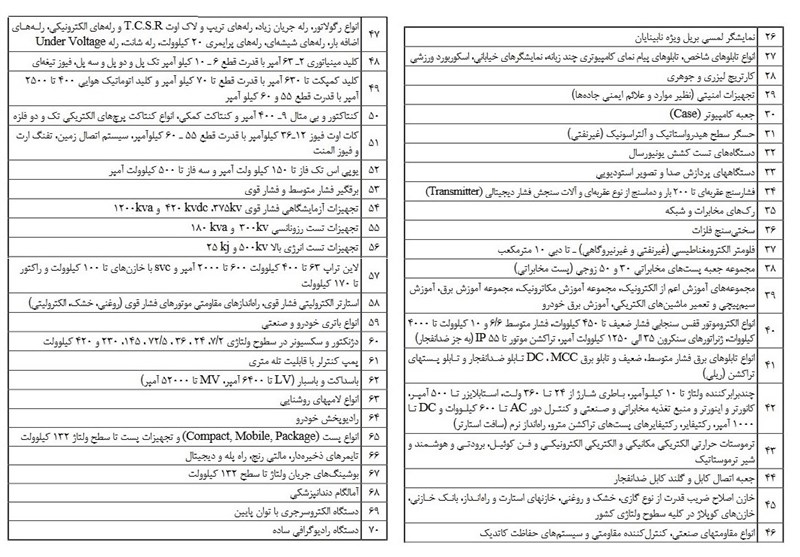 ۲۶ نمایشگر لمسی بریل ویژه نابینایان
۲۷ انواع تابلوهای شاخص، تابلوهای پیام نمای کامپیوتری چند زبانه، نمایشگرهای خیابانی، اسکوربورد ورزشی
۲۸ کارتریج لیزری و جوهری
۲۹ تجهیزات امنیتی (نظیر موارد و علائم ایمنی جاده‌ها)
۳۰ جعبه کامپیوتر (Case)
۳۱ حسگر سطح هیدرواستاتیک و آلتراسونیک (غیرنفتی)
۳۲ دستگاه‌های تست کشش یونیورسال
۳۳ دستگاههای پردازش صدا و تصویر استودیویی
۳۴ فشارسنج عقربه‌ای تا ۲۰۰ بار و دماسنج از نوع عقربه‌ای و آلات سنجش فشار دیجیتالی (Transmitter)
۳۵ رک‌های مخابرات و شبکه
۳۶ سختی‌سنج فلزات
۳۷ فلومتر الکترومغناطیسی (غیرنفتی و غیرنیروگاهی) ـ تا دبی ۱۰ مترمکعب
۳۸ مجموعه جعبه پست‌های مخابراتی ۳۰ و ۵۰ زوجی (پست مخابراتی)
۳۹ مجموعه‌های آموزش اعم از الکترونیک، مجموعه آموزش مکاترونیک، مجموعه آموزش برق، آموزش
سیم‌پیچی و تعمیر ماشین‌های الکتریکی، آموزش برق خودرو
۴۰ انواع الکتروموتور قفس سنجابی فشار ضعیف تا ۴۵۰ کیلووات، فشار متوسط ۶/۶ و ۱۰ کیلوولت تا ۴۰۰۰
کیلووات، ژنراتورهای سنکرون ۳۵ الی ۱۲۵۰ کیلوولت آمپر، تراکشن موتور تا IP ۵۵ (به جز ضدانفجار)
۴۱ انواع تابلوهای برق فشار متوسط، ضعیف و تابلو برق DC ،MCC، تابلو ضدانفجار و تابلو پستهای
تراکشن (ریلی)
۴۲ چندبرابرکننده ولتاژ تا ۱۰ کیلوآمپر، باطری شارژ از ۲۴ تا ۳۶۰ ولت، استابلایزر تا ۵۰۰ آمپر،
کانورتر و اینورتر و منبع تغذیه مخابراتی و صنعتی و کنترل دور AC تا ۶۰۰ کیلووات و DC تا
۱۰۰۰ آمپر، رکتیفایر، رکتیفایرهای پست‌های تراکشن مترو، راه‌انداز نرم (سافت استارتر)
۴۳ ترموستات حرارتی الکتریکی مکانیکی و الکتریکی الکترونیکی و فن کوئیل، برودتی و هوشمند و
شیر ترموستاتیک
۴۴ جعبه اتصال کابل و گلند کابل ضدانفجار
۴۵ خازن اصلاح ضریب قدرت از نوع گازی، خشک و روغنی، خازنهای استارت و راه‌انداز، بانک خازنی،
خازن‌های کوپلاژ در کلیه سطوح ولتاژی کشور
۴۶ انواع مقاومتهای صنعتی، کنترل‌کننده مقاومتی و سیستم‌های حفاظت کاتدیک
۴۷ انواع رگولاتور، رله جریان زیاد، رله‌های تریپ و لاک اوت T.C.S.R و رله‌های الکترونیکی، رله‌های
اضافه بار، رله‌های شیشه‌ای، رله‌های پرایمری ۲۰ کیلوولت، رله شانت، رله Under Voltage
۴۸ کلید مینیاتوری ۲ـ ۶۳ آمپر با قدرت قطع ۶ ـ ۱۰ کیلو آمپر تک پل و دو پل و سه پل، فیوز تیغه‌ای
۴۹ کلید کمپکت تا ۶۳۰ آمپر با قدرت قطع تا ۷۰ کیلو آمپر و کلید اتوماتیک هوایی ۴۰۰ تا ۲۵۰۰
آمپر با قدرت قطع ۵۵ و ۶۰ کیلو آمپر
۵۰ کنتاکتور و بی متال ۹ـ ۴۰۰ آمپر و کنتاکت کمکی، انواع کنتاکت پرچ‌های الکتریکی تک و دو فلزه
۵۱ کات اوت فیوز ۱۲ـ۳۶ کیلوآمپر با قدرت قطع ۵۵ ـ ۶۰ کیلوآمپر، سیستم اتصال زمین، تفنگ ارت
و فیوز المنت
۵۲ یوپی اس تک فاز تا ۱۵۰ کیلو ولت آمپر و سه فاز تا ۵۰۰ کیلوولت آمپر
۵۳ برقگیر فشار متوسط و فشار قوی
۵۴ تجهیزات آزمایشگاهی فشار قوی ۳۷۵kv، ۴۲۰ kvdc و ۱۲۰۰kva
۵۵ تجهیزات تست رزونانسی ۳۰۰kv و ۱۸۰ kva
۵۶ تجهیزات تست انرژی بالا ۵۰۰kv و ۲۵ kj
۵۷ لاین تراپ ۶۳ تا ۴۰۰ کیلوولت ۶۰۰ تا ۲۰۰۰ آمپر و svc با خازن‌های تا ۱۰۰ کیلوولت و راکتور
تا ۱۷۰ کیلوولت
۵۸ استارتر الکترولیتی فشار قوی، راه‌اندازهای مقاومتی موتورهای فشار قوی (روغنی، خشک، الکترولیتی)
۵۹ انواع باتری خودرو و صنعتی
۶۰ دژنکتور و سکسیونر در سطوح ولتاژی ۷/۲، ۲۴ ، ۳۶ ، ۷۲/۵ ، ۱۴۵، ۲۳۰ و ۴۲۰ کیلوولت
۶۱ پمپ کنترلر با قابلیت تله متری
۶۲ باسداکت و باسبار (LV تا ۶۴۰۰ آمپر، MV تا ۵۲۰۰۰ آمپر)
۶۳ انواع لامپهای روشنایی
۶۴ رادیوپخش خودرو
۶۵ انواع پست (Compact, Mobile, Package) و تجهیزات پست تا سطح ولتاژ ۱۳۲ کیلوولت
۶۶ تایمرهای ذخیره‌دار، مالتی رنج، راه پله و دیجیتال
۶۷ بوشینگ‌های جریان ولتاژ تا سطح ۱۳۲ کیلوولت
۶۸ آمالگام دندانپزشکی
۶۹ دستگاه الکتروسرجری با توان پایین
۷۰ دستگاه رادیوگرافی ساده